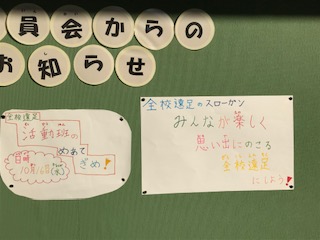 員会からの
お知らせ
全校遠足
活動班の
めあて
ぎめ!
日時
10月16日(水)
全校遠足のスローガン
みんなが楽しく
思い出にのこる
全校遠足
にしよう!